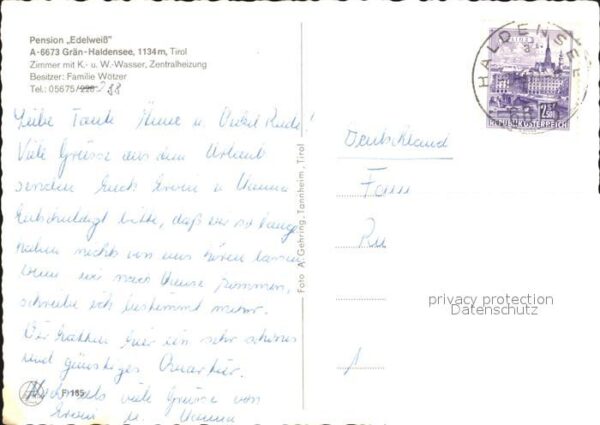 Pension „Edelweiß"
A-6673 Grän-Haldensee, 1134 m, Tirol
Zimmer mit K.- u. W.-Wasser, Zentralheizung
Besitzer: Familie Wötzer
Tel.: 05675/228 288
Liebe Tante u. Onkel
Viele Grüsse aus dem Urlaub
senden Euch Erwin u. Hanna
Entschuldigt bitte, daß wir so lange
haben nichts von uns hören lassen
wenn wir nach Hause kommen,
schreibe ich bestimmt mehr.
Wir hatten hier ein sehr schönes
und günstiges Quartier.
Nochmals viele Grüsse von
Erwin u. Hanna
F 185
Foto A. Gehring, Tannheim, Tirol
HALDENSEE
LINZ
REPUBLIK ÖSTERREICH
Deutschland
Fam
privacy protection
Datenschutz